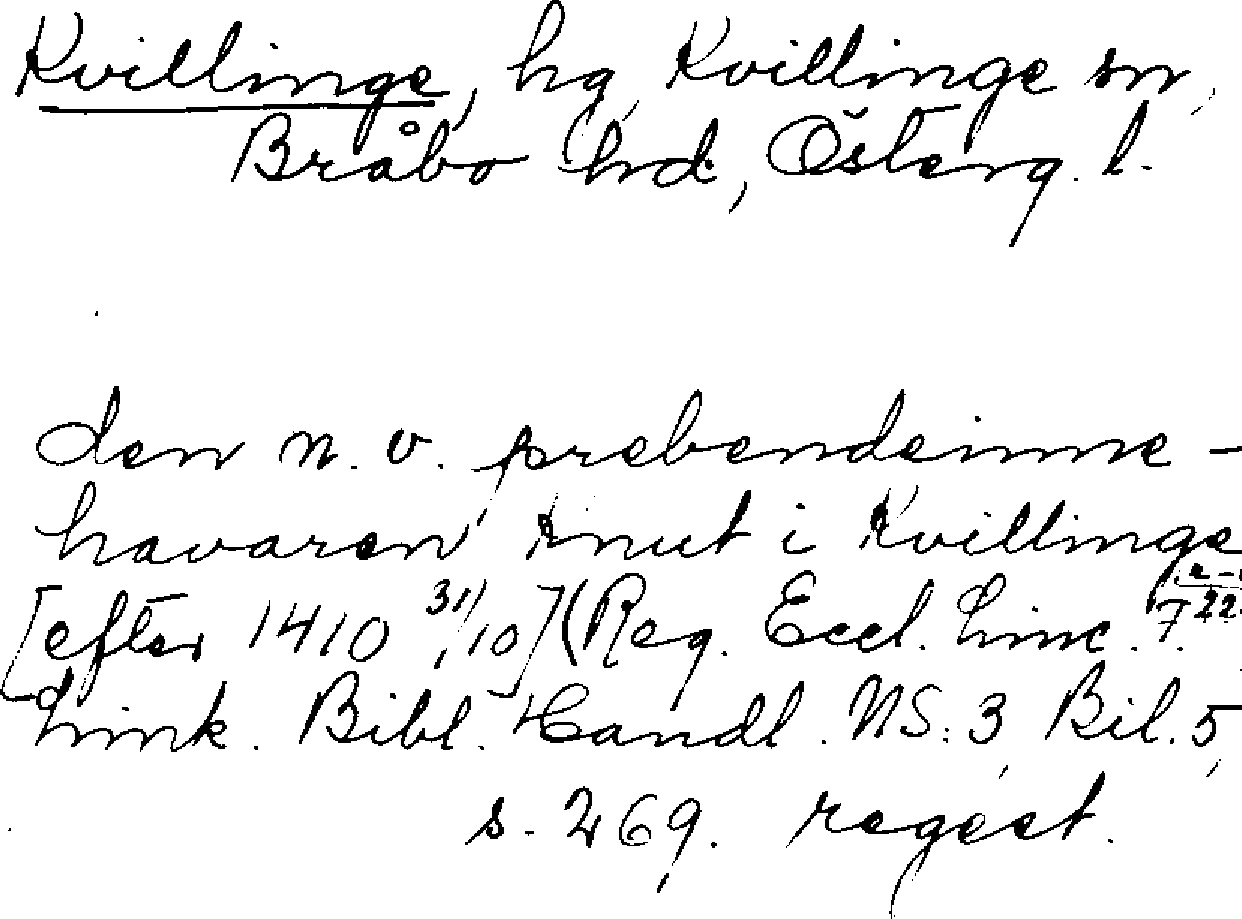 Kvillinge, hg, Kvillinge sn,
Bråbo hd, Österg. l.
den n. v. prebendeinne-
havaren Knut i Kvillinge
[efter 1410 31/10] (Reg. Eccl. Linc. 7 22
Link. Bibl. Handl. NS: 3, Bil. 5,
s. 269. regest.